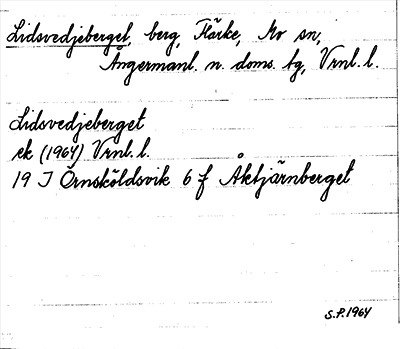 Lidsvedjeberget, berg, Flärke, Mo sn,
Ångermanl. n. doms. tg, Vrnl. l.
Lidsvedjeberget
ek (1964) Vrnl. l.
19 J Örnsköldsvik 6 f Åktjärnberget
S.P. 1964